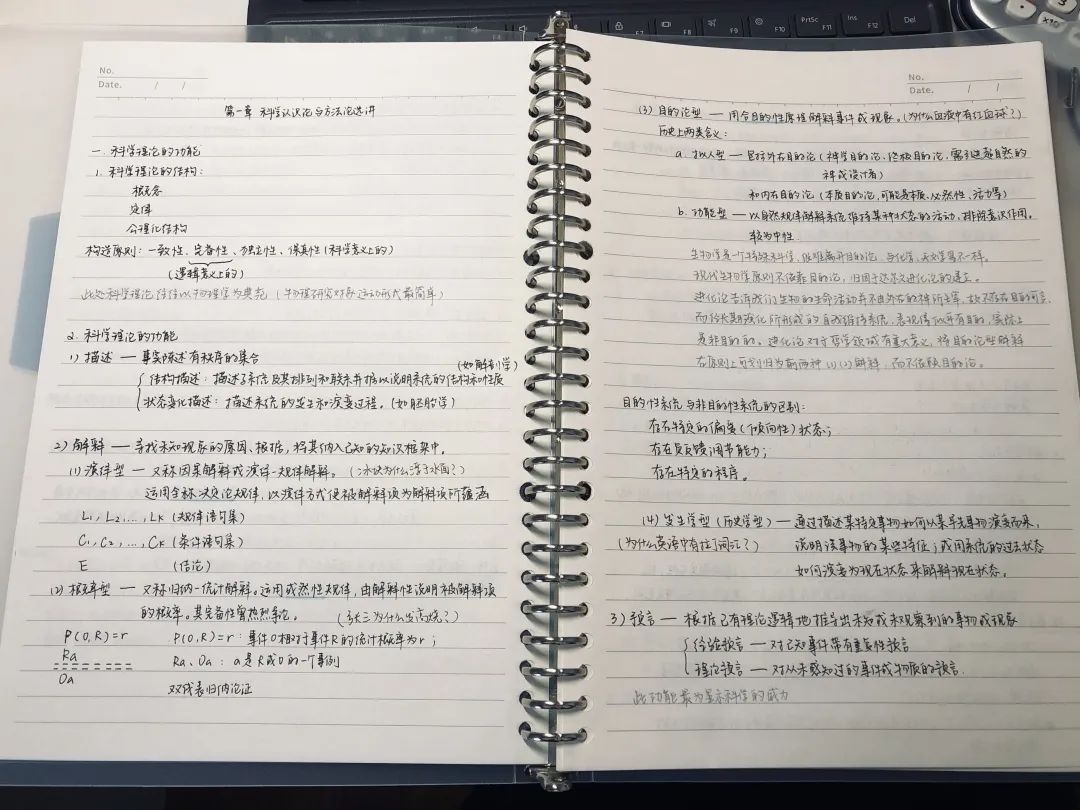 No.
Date. / /
第一章 科学认识论与方法论选讲
一. 科学理论的功能
1. 科学理论的结构:
概念
定律
合理化结构
构造原则: 一致性、完备性、独立性、保真性(科学意义上的)
(逻辑意义上的)
此处科学理论往往以物理学为典范 (物理研究对象运动形式最简单)
2. 科学理论的功能
1) 描述 — 事实陈述有秩序的集合
(如解剖学)
结构描述: 描述了系统及其排列和联系并据以说明系统的结构和性质
状态变化描述: 描述系统的发生和演变过程。(如胚胎学)
2) 解释 — 寻找未知现象的原因、根据, 将其纳入已知的知识框架中。
(1) 演绎型 — 又称因果解释或演绎-规律解释。(冰块为什么浮于水面?)
运用全称决定论规律, 以演绎方式使被解释项为解释项所蕴涵
L1, L2, ..., LK (规律语句集)
C1, C2, ..., CK (条件语句集)
E (结论)
(2) 概率型 — 又称归纳-统计解释。运用或然性规律, 由解释性说明被解释项
的概率。其完备性曾热烈争论。 (张三为什么生流感?)
P(O,R)=r P(O,R)=r: 事件O相对于事件R的统计概率为r;
Ra Ra、Oa: a是R或O的一个事例
Oa
双线表归纳论证
No.
Date. / /
(3) 目的论型 — 用合目的性原理解释事件或现象。(为什么血液中有红血球?)
历史上两类含义:
a. 拟人型 — 包括外在目的论 (神学目的论、终极目的论, 需引进超自然的
神或设计者)
和内在目的论 (本质目的论, 可能是本质、必然性、活力等)
b. 功能型 — 以自然规律解释系统维持某种状态的活动, 排除意识作用。
较为中性.
生物学是一个特殊科学, 很难离开目的论, 与化学、天文学等不一样。
现代生物学原则不依靠目的论, 归因于达尔文进化论的建立。
进化论告诉我们生物的生命活动并不由外在的神所主宰, 故不存在目的可言,
而经长期演化所形成的自我维持系统, 表现得似乎有目的, 实际上
是非目的的。进化论对于哲学领域有重大意义, 将目的论型解释
在原则上可划归为前两种(1)(2)解释, 而不依赖目的论。
目的性系统与非目的性系统的区别:
存在特定的偏爱(倾向性)状态;
存在负反馈调节能力;
存在特定的程序。
(4) 发生学型 (历史学型) — 通过描述某特定事物如何从某早先事物演变而来,
(为什么英语中有拉丁词汇?) 说明该事物的某些特征; 或用系统的过去状态
如何演变为现在状态来解释现在状态。
3) 预言 — 根据已有理论逻辑地推导出未知或未观察到的事物或现象
经验预言 — 对已知事件带有重复性预言
理论预言 — 对从未感知过的事件或物质的预言.
此功能最为显示科学的威力